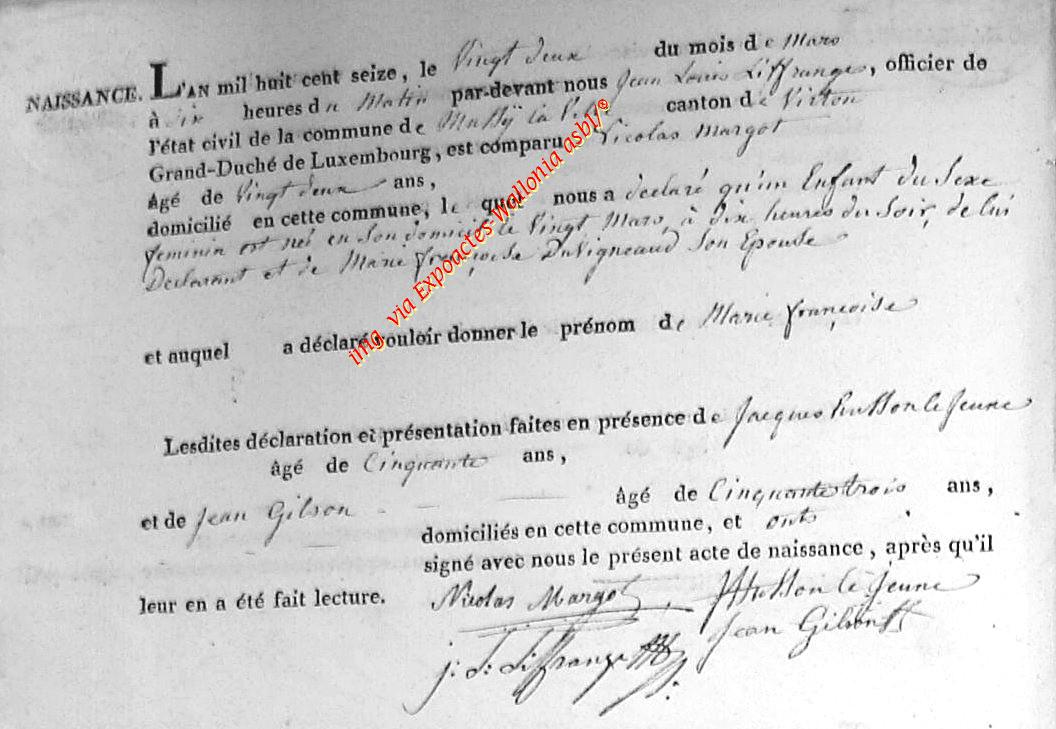 NAISSANCE. L'AN mil huit cent seize, le Vingt deux du mois de Mars
à Dix heures du Matin par-devant nous Jean Louis Liffrange, officier de
l'état civil de la commune de Mussÿ la Ville canton de Virton
Grand-Duché de Luxembourg, est comparu Nicolas Margot
âgé de Vingt deux ans,
domicilié en cette commune, le quel nous a declaré qu'un Enfant du Sexe
feminin est né en Son domicile le Vingt Mars, à dix heures du Soir, de lui
Declarant et de Marie françoise Duvigneaud Son Epouse
et auquel a déclaré vouloir donner le prénom de Marie françoise
Lesdites déclaration et présentation faites en présence de Jacques husson le Jeune
âgé de Cinquante ans,
et de Jean Gilson âgé de Cinquante trois ans,
domiciliés en cette commune, et onts
signé avec nous le présent acte de naissance, après qu'il
leur en a été fait lecture.
Nicolas Margot, JHusson le Jeune
j: L: Liffrange Jean Gilson
img via Expoactes Wallonia asbl/®